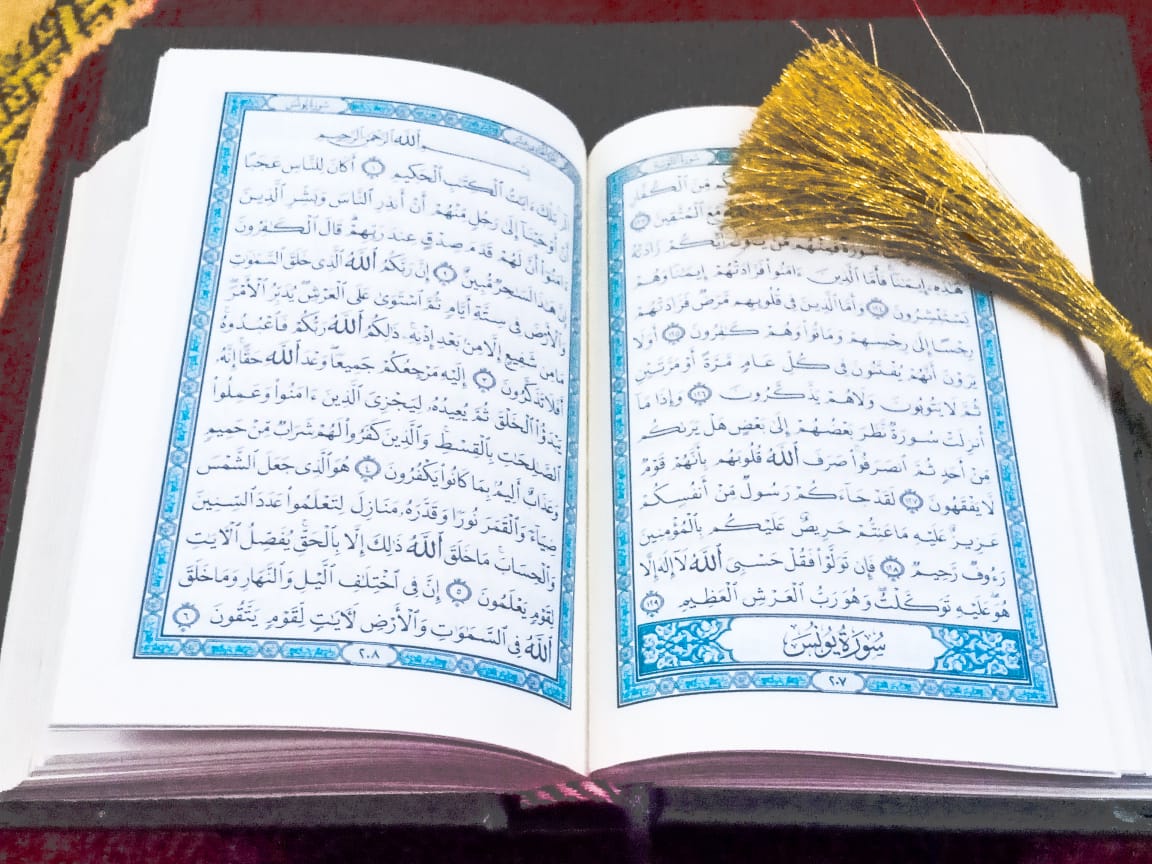 سُورَةُ التَّوْبَةِ
مِّنَ ٱلْكُفَّارِ
مَعَ ٱلْمُتَّقِينَ ١٢٣
سُورَةٌ فَمِنْهُم مَّن يَقُولُ أَيُّكُمْ زَادَتْهُ
هَٰذِهِۦٓ إِيمَٰنًا فَأَمَّا ٱلَّذِينَ ءَامَنُوا۟ فَزَادَتْهُمْ إِيمَٰنًا وَهُمْ
يَسْتَبْشِرُونَ ١٢٤ وَأَمَّا ٱلَّذِينَ فِى قُلُوبِهِم مَّرَضٌ فَزَادَتْهُمْ
رِجْسًا إِلَىٰ رِجْسِهِمْ وَمَاتُوا۟ وَهُمْ كَٰفِرُونَ ١٢٥ أَوَلَا
يَرَوْنَ أَنَّهُمْ يُفْتَنُونَ فِى كُلِّ عَامٍ مَّرَّةً أَوْ مَرَّتَيْنِ
ثُمَّ لَا يَتُوبُونَ وَلَا هُمْ يَذَّكَّرُونَ ١٢٦ وَإِذَا مَآ
أُنزِلَتْ سُورَةٌ نَّظَرَ بَعْضُهُمْ إِلَىٰ بَعْضٍ هَلْ يَرَىٰكُم
مِّنْ أَحَدٍ ثُمَّ ٱنصَرَفُوا۟ صَرَفَ ٱللَّهُ قُلُوبَهُم بِأَنَّهُمْ قَوْمٌ
لَّا يَفْقَهُونَ ١٢٧ لَقَدْ جَآءَكُمْ رَسُولٌ مِّنْ أَنفُسِكُمْ
عَزِيزٌ عَلَيْهِ مَا عَنِتُّمْ حَرِيصٌ عَلَيْكُم بِٱلْمُؤْمِنِينَ
رَءُوفٌ رَّحِيمٌ ١٢٨ فَإِن تَوَلَّوْا۟ فَقُلْ حَسْبِىَ ٱللَّهُ لَآ إِلَٰهَ إِلَّا
هُوَ عَلَيْهِ تَوَكَّلْتُ وَهُوَ رَبُّ ٱلْعَرْشِ ٱلْعَظِيمِ ١٢٩
سُورَةُ يُونُسَ
٢٠٧
سُورَةُ يُونُسَ
بِسْمِ ٱللَّهِ ٱلرَّحْمَٰنِ ٱلرَّحِيمِ
الٓر تِلْكَ ءَايَٰتُ ٱلْكِتَٰبِ ٱلْحَكِيمِ ١ أَكَانَ لِلنَّاسِ عَجَبًا
أَنْ أَوْحَيْنَآ إِلَىٰ رَجُلٍ مِّنْهُمْ أَنْ أَنذِرِ ٱلنَّاسَ وَبَشِّرِ ٱلَّذِينَ
ءَامَنُوٓا۟ أَنَّ لَهُمْ قَدَمَ صِدْقٍ عِندَ رَبِّهِمْ قَالَ ٱلْكَٰفِرُونَ
إِنَّ هَٰذَا لَسَٰحِرٌ مُّبِينٌ ٢ إِنَّ رَبَّكُمُ ٱللَّهُ ٱلَّذِى خَلَقَ ٱلسَّمَٰوَٰتِ
وَٱلْأَرْضَ فِى سِتَّةِ أَيَّامٍ ثُمَّ ٱسْتَوَىٰ عَلَى ٱلْعَرْشِ يُدَبِّرُ ٱلْأَمْرَ
مَا مِن شَفِيعٍ إِلَّا مِنۢ بَعْدِ إِذْنِهِۦ ذَٰلِكُمُ ٱللَّهُ رَبُّكُمْ فَٱعْبُدُوهُ
أَفَلَا تَذَكَّرُونَ ٣ إِلَيْهِ مَرْجِعُكُمْ جَمِيعًا وَعْدَ ٱللَّهِ حَقًّا إِنَّهُۥ
يَبْدَؤُا۟ ٱلْخَلْقَ ثُمَّ يُعِيدُهُۥ لِيَجْزِىَ ٱلَّذِينَ ءَامَنُوا۟ وَعَمِلُوا۟
ٱلصَّٰلِحَٰتِ بِٱلْقِسْطِ وَٱلَّذِينَ كَفَرُوا۟ لَهُمْ شَرَابٌ مِّنْ حَمِيمٍ
وَعَذَابٌ أَلِيمٌۢ بِمَا كَانُوا۟ يَكْفُرُونَ ٤ هُوَ ٱلَّذِى جَعَلَ ٱلشَّمْسَ
ضِيَآءً وَٱلْقَمَرَ نُورًا وَقَدَّرَهُۥ مَنَازِلَ لِتَعْلَمُوا۟ عَدَدَ ٱلسِّنِينَ
وَٱلْحِسَابَ مَا خَلَقَ ٱللَّهُ ذَٰلِكَ إِلَّا بِٱلْحَقِّ يُفَصِّلُ ٱلْءَايَٰتِ
لِقَوْمٍ يَعْلَمُونَ ٥ إِنَّ فِى ٱخْتِلَٰفِ ٱلَّيْلِ وَٱلنَّهَارِ وَمَا خَلَقَ
ٱللَّهُ فِى ٱلسَّمَٰوَٰتِ وَٱلْأَرْضِ لَءَايَٰتٍ لِّقَوْمٍ يَتَّقُونَ ٦
٢٠٨